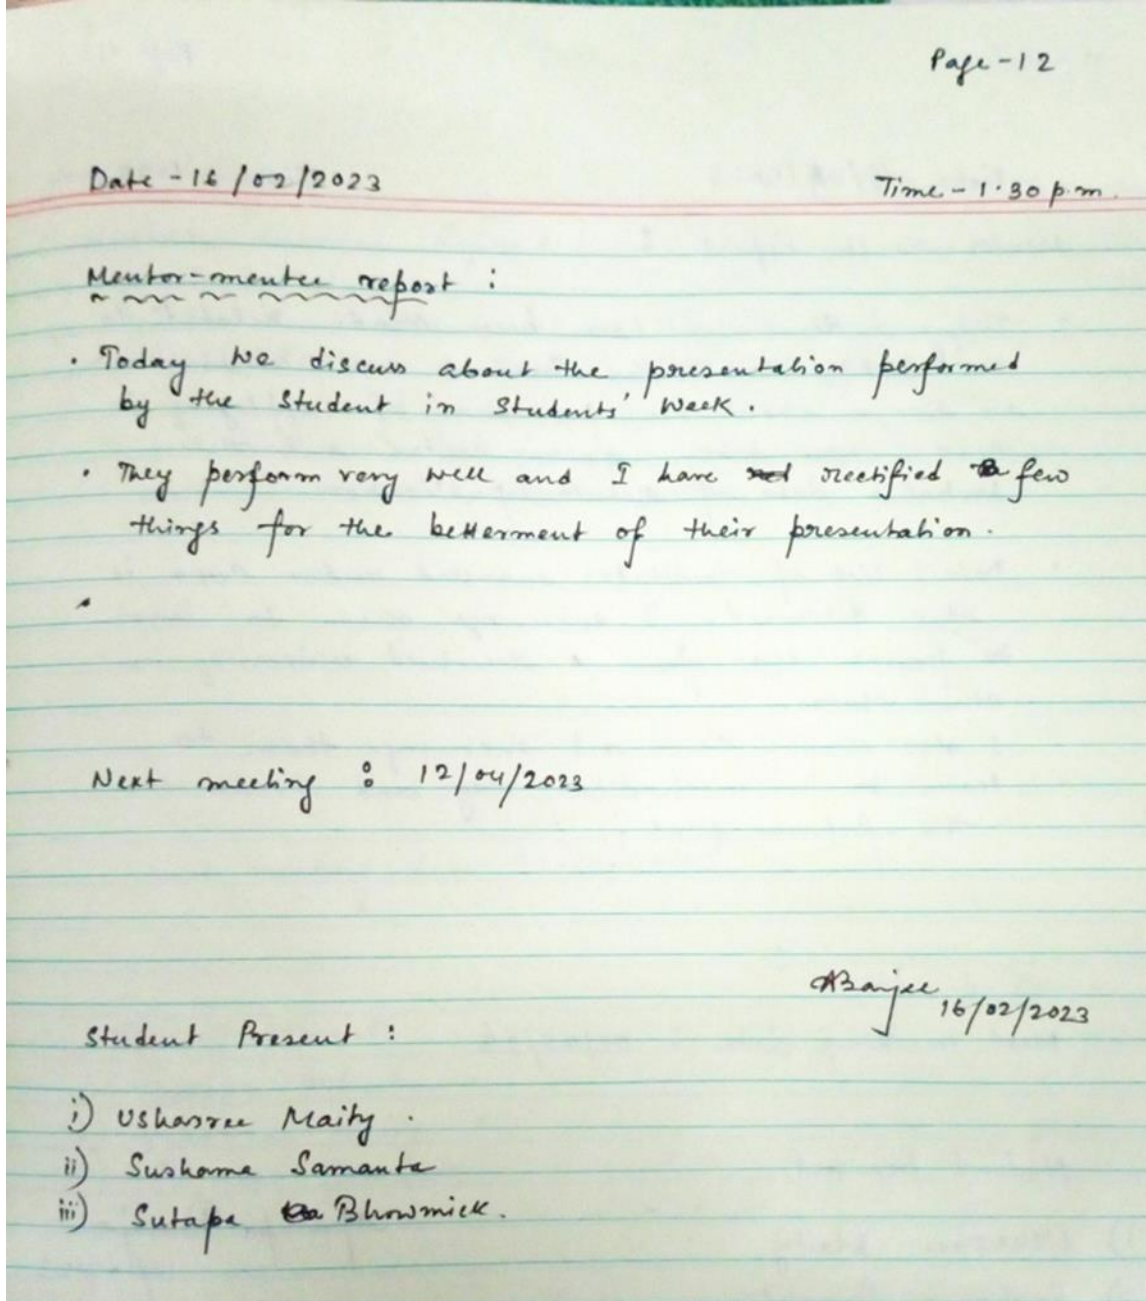 Page - 12
Date - 16/02/2023
Time - 1.30 p.m.
Mentor-mentee report :
• Today we discuss about the presentation performed
by the Student in Students' Week.
• They perform very well and I have rectified few
things for the betterment of their presentation.
•
Next meeting : 12/04/2023
16/02/2023
Student Present :
i) Ushasree Maity .
ii) Sushama Samanta
iii) Sutapa Bhowmick.